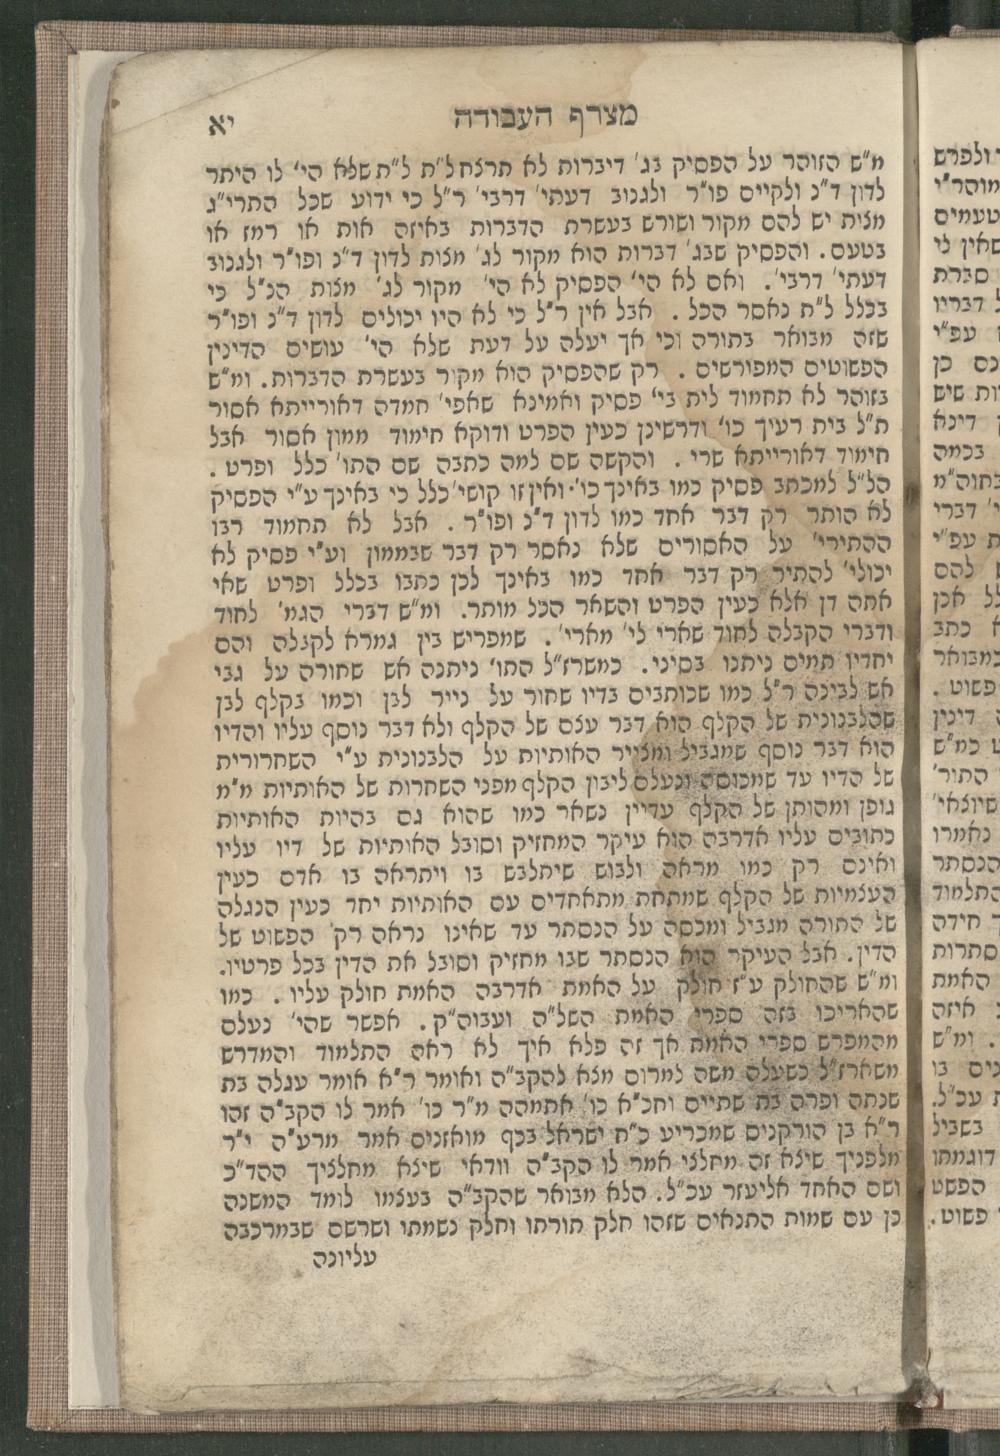 מצרף העבודה
יא
מ"ש הזוהר על הפסיק בג' דיברות לא תרצח ל"ת ל"ת שלא הי' לו היתר
לדון ד"נ ולקיים פו"ר ולגנוב דעתי' דרבי' ר"ל כי ידוע שכל התרי"ג
מצות יש להם מקור ושורש בעשרת הדברות באיזה אות או רמז או
בטעם. והפסיק שבג' דברות הוא מקור לג' מצות לדון ד"נ ופו"ר ולגנוב
דעתי' דרבי'. ואם לא הי' הפסיק לא הי' מקור לג' מצות הנ"ל כי
בכלל ל"ת נאסר הכל . אבל אין ר"ל כי לא היו יכולים לדון ד"נ ופו"ר
שזה מבואר בתורה וכי אך יעלה על דעת שלא הי' עושים הדינין
הפשוטים המפורשים . רק שהפסיק הוא מקור בעשרת הדברות. ומ"ש
בזוהר לא תחמוד לית בי' פסיק ואמינא שאפי' חמדה דאורייתא אסור
ת"ל בית רעיך כו' ודרשינן כעין הפרט ודוקא חימוד ממון אסור אבל
חימוד דאורייתא שרי . והקשה שם למה כתבה שם התו' כלל ופרט .
הל"ל למכתב פסיק כמו באינך כו'. ואין זו קושי' כלל כי באינך ע"י הפסיק
לא הותר רק דבר אחד כמו לדון ד"נ ופו"ר . אבל לא תחמוד רבו
ההתירי' על האסורים שלא נאסר רק דבר שבממון וע"י פסיק לא
יכולי' להתיר רק דבר אחד כמו באינך לכן כתבו בכלל ופרט שאי
אתה דן אלא כעין הפרט והשאר הכל מותר. ומ"ש דברי הגמ' לחוד
ודברי הקבלה לחוד שארי לי' מארי'. שמפריש בין גמרא לקבלה והם
יחדיו תמים ניתנו בסיני. כמשרז"ל התו' ניתנה אש שחורה על גבי
אש לבינה ר"ל כמו שכותבים בדיו שחור על נייר לבן וכמו בקלף לבן
שהלבנונית של הקלף הוא דבר עצם של הקלף ולא דבר נוסף עליו והדיו
הוא דבר נוסף שמגביל ומצייר האותיות על הלבנונית ע"י השחרורית
של הדיו עד שמכוסה ונעלם ליבון הקלף מפני השחרות של האותיות מ"מ
גופן ומהותן של הקלף עדיין נשאר כמו שהוא גם בהיות האותיות
כתובים עליו אדרבה הוא עיקר המחזיק וסובל האותיות של דיו עליו
ואינם רק כמו מראה ולבוש שיתלבש בו ויתראה בו אדם כעין
העצמיות של הקלף שמתחת מתאחדים עם האותיות יחד כעין הנגלה
של התורה מגביל ומכסה על הנסתר עד שאינו נראה רק הפשוט של
הדין. אבל העיקר הוא הנסתר שבו מחזיק וסובל את הדין בכל פרטיו.
ומ"ש שהחולק ע"ז חולק על האמת אדרבה האמת חולק עליו . כמו
שהאריכו בזה ספרי האמת השל"ה ועבוה"ק. אפשר שהי' נעלם
מהמפרש ספרי האמת אך זה פלא איך לא ראה התלמוד והמדרש
משארז"ל כשעלה משה למרום מצא להקב"ה ואומר ר"א אומר עגלה בת
שנתה ופרה בת שתיים וחכ"א כו' אתמהה מ"ר כו' אמר לו הקב"ה זהו
ר"א בן הורקנים שמכריע כ"ח ישראל בכף מואזנים אמר מרע"ה י"ר
מלפניך שיצא זה מחלצי אמר לו הקב"ה וודאי שיצא מחלציך ההד"כ
ושם האחד אליעזר עכ"ל. הלא מבואר שהקב"ה בעצמו לומד המשנה
כן עם שמות התנאים שזהו חלק תורתו וחלק נשמתו ושרשם שבמרכבה
עליונה
ולפרש
מוהר"י
טעמים
שאין לי
סברת
דבריו
עפ"י
כן
שיש
דינא
בכמה
דברי
עפ"י
להם
אכן
כתב
כמבואר
פשוט .
דינין
כמ"ש
התור'
שיוצאי'
נאמרו
הנסתר
התלמוד
חידה
סתרות
האמת
איזה
ומ"ש
בו
עכ"ל.
בשביל
דוגמתו
הפשט
פשוט.